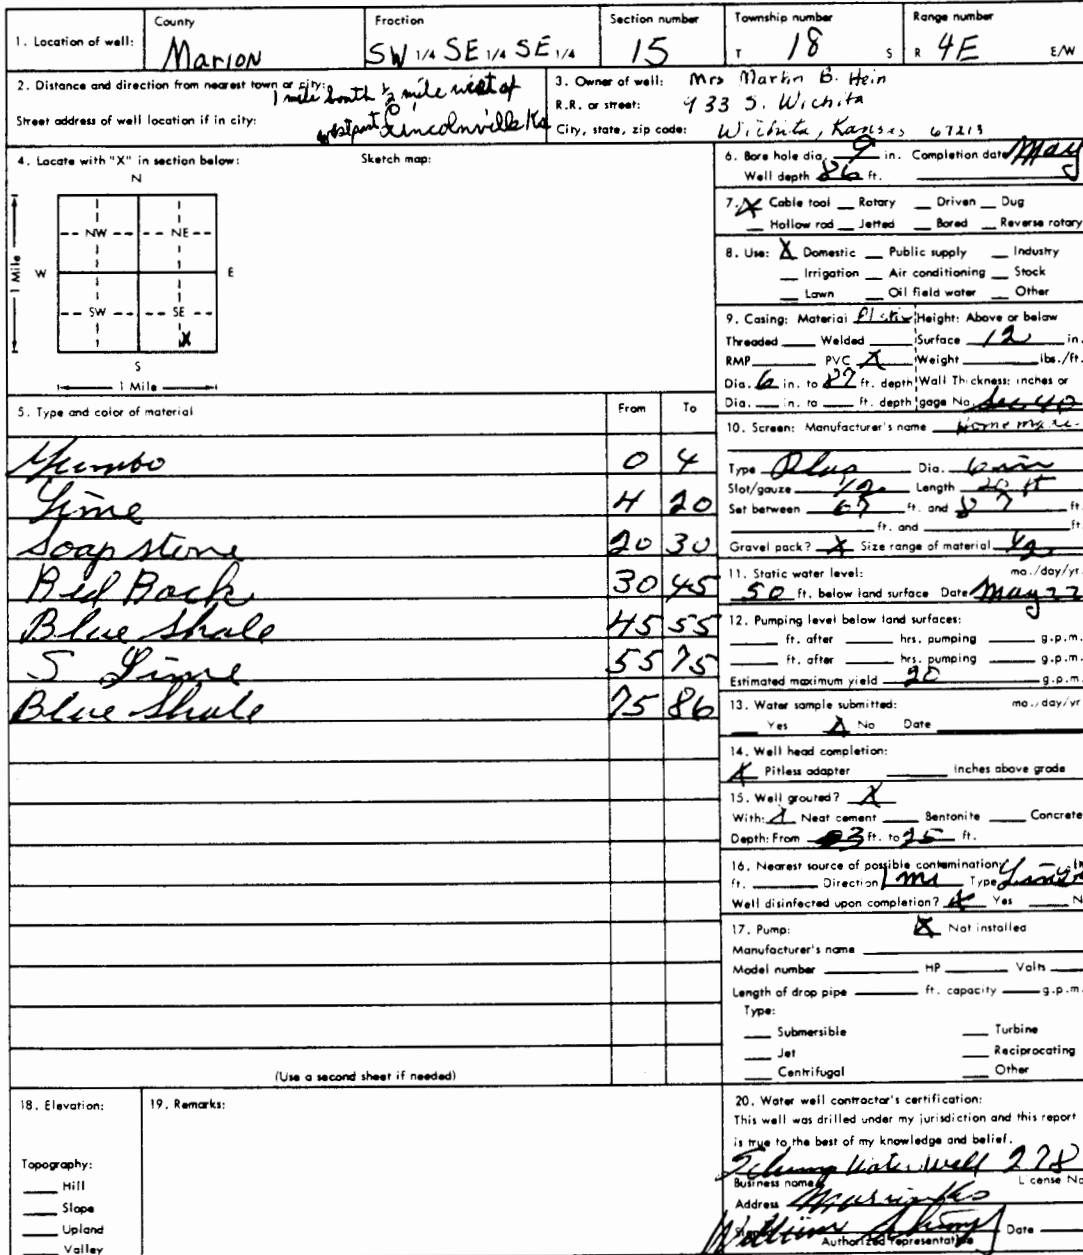 1. Location of well: County Marion Fraction SW 1/4 SE 1/4 SE 1/4 Section number 15 Township number T 18 S Range number R 4E E/W
2. Distance and direction from nearest town or city: 1 mile South 1/2 mile west of
Street address of well location if in city: Lincolnville Ks
3. Owner of well: Mrs Martin B. Hein
R.R. or street: 933 S. Wichita
City, state, zip code: Wichita, Kansas 67213
4. Locate with "X" in section below: Sketch map:
N
NW NE
W E
1 Mile
SW SE
X
S
1 Mile
5. Type and color of material From To
Gumbo 0 4
Lime 4 20
Soap stone 20 30
Red Rock 30 45
Blue Shale 45 55
S Lime 55 75
Blue Shale 75 86
(Use a second sheet if needed)
6. Bore hole dia. 9 in. Completion date May
Well depth 86 ft.
7. X Cable tool __ Rotary __ Driven __ Dug
__ Hollow rod __ Jetted __ Bored __ Reverse rotary
8. Use: X Domestic __ Public supply __ Industry
__ Irrigation __ Air conditioning __ Stock
__ Lawn __ Oil field water __ Other
9. Casing: Material Plastic Height: Above or below
Threaded ____ Welded ____ Surface 12 in.
RMP ____ PVC X Weight ____ lbs./ft.
Dia. 6 in. to 87 ft. depth Wall Thickness: inches or
Dia. ___ in. to ___ ft. depth gage No.
10. Screen: Manufacturer's name home made
Type Dia. 6 in
Slot/gauze Length 20 ft
Set between 67 ft. and 87 ft.
____ ft. and ____ ft.
Gravel pack? X Size range of material
11. Static water level: mo./day/yr.
50 ft. below land surface Date May 22
12. Pumping level below land surfaces:
____ ft. after ____ hrs. pumping ____ g.p.m.
____ ft. after ____ hrs. pumping ____ g.p.m.
Estimated maximum yield 20 g.p.m.
13. Water sample submitted: mo./day/yr
__ Yes X No Date
14. Well head completion:
X Pitless adapter ____ Inches above grade
15. Well grouted? X
With: X Neat cement ____ Bentonite ____ Concrete
Depth: From 3 ft. to 25 ft.
16. Nearest source of possible contamination:
ft. ____ Direction Type
Well disinfected upon completion? X Yes ____ N
17. Pump: X Not installed
Manufacturer's name
Model number ____ HP ____ Volts ____
Length of drop pipe ____ ft. capacity ____ g.p.m.
Type:
__ Submersible __ Turbine
__ Jet __ Reciprocating
__ Centrifugal __ Other
18. Elevation:
Topography:
__ Hill
__ Slope
__ Upland
__ Valley
19. Remarks:
20. Water well contractor's certification:
This well was drilled under my jurisdiction and this report
is true to the best of my knowledge and belief.
Water Well 278
Business name License No
Address
Date
Authorized representative